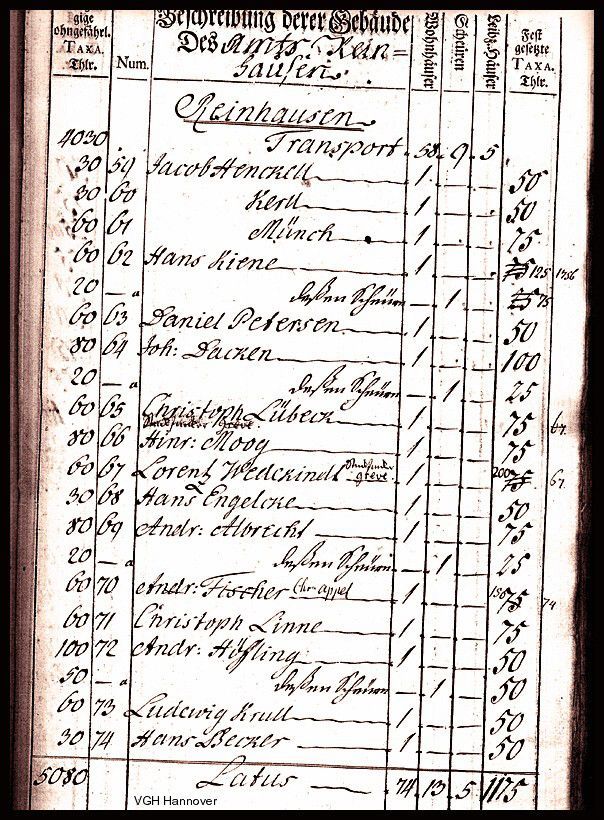 gige ohngefährl. TAXA. Thlr. Num. Beschreibung derer Gebäude Des Amts Rein= hausen. Wohnhäuser Scheuren Leibz.Häuser Fest gesetzte TAXA. Thlr.
Reinhausen
4030 Transport 58 9 5
30 59 Jacob Henckell 1 — — 50
30 60 Kerll 1 — — 50
60 61 Münch 1 — — 75
60 62 Hans Kiene 1 — — 75 125 1786
20 — a deßen Scheüre — 1 — 25 75
60 63 Daniel Petersen 1 — — 50
80 64 Joh: Dacken 1 — — 100
20 — a deßen Scheüre — 1 — 25
60 65 Christoph Lübeck 1 — — 75
80 66 Hinr: Moog 1 — — 75
60 67 Lorentz Wedekindt greve. 1 — — 200 75 67
30 68 Hans Engelcke 1 — — 50
80 69 Andr: Albrecht 1 — — 75
20 — a deßen Scheüre — 1 — 25
60 70 Andr: Fischer Chr. Appel 1 — — 75 74
60 71 Christoph Linne 1 — — 75
100 72 Andr: Höfling 1 — — 50
50 — a deßen Scheüre — 1 — 50
60 73 Ludewig Krull 1 — — 50
30 74 Hans Becker 1 — — 50
5080 Latus 74 13 5 1175
VGH Hannover